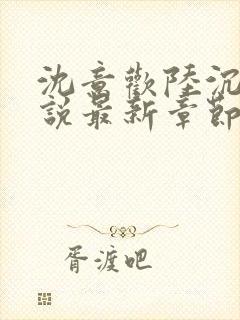 沈意歡陸沉
說最新章節
胥渡吧